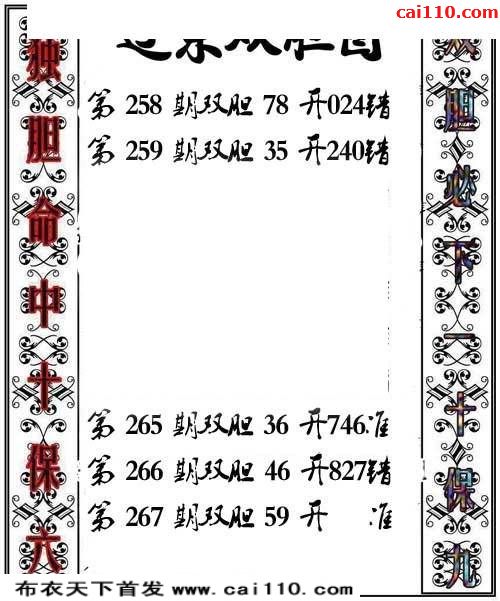 cai110.com
第 258 期双胆 78 开024错
第 259 期双胆 35 开240错
第 265 期双胆 36 开746准
第 266 期双胆 46 开827错
第 267 期双胆 59 开 准
独胆命中十保六
胆必下一十保九
布衣天下首发 www.cai110.com